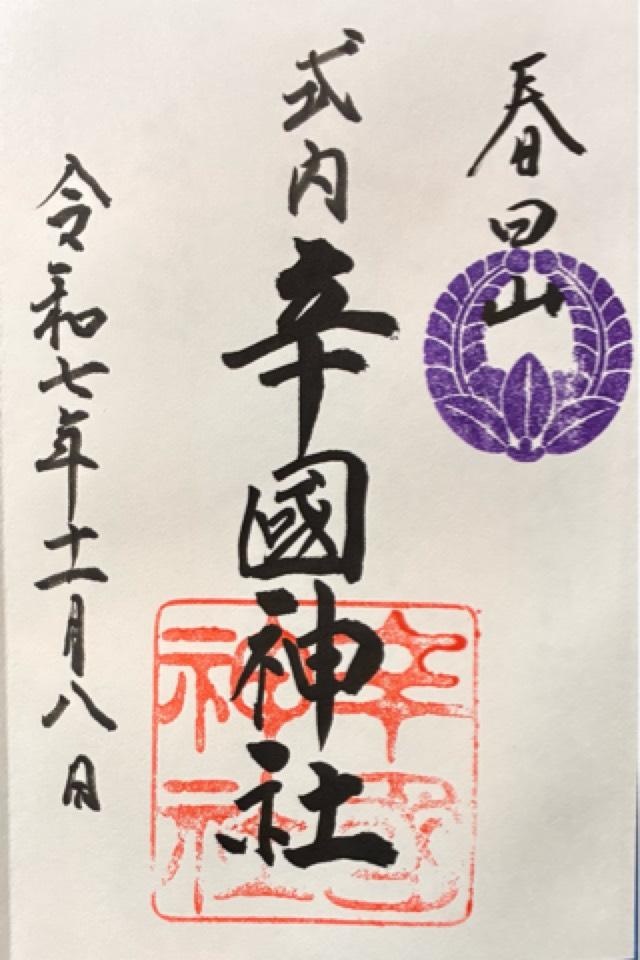 春日山
式内 辛國神社
辛國神社
令和七年十一月八日